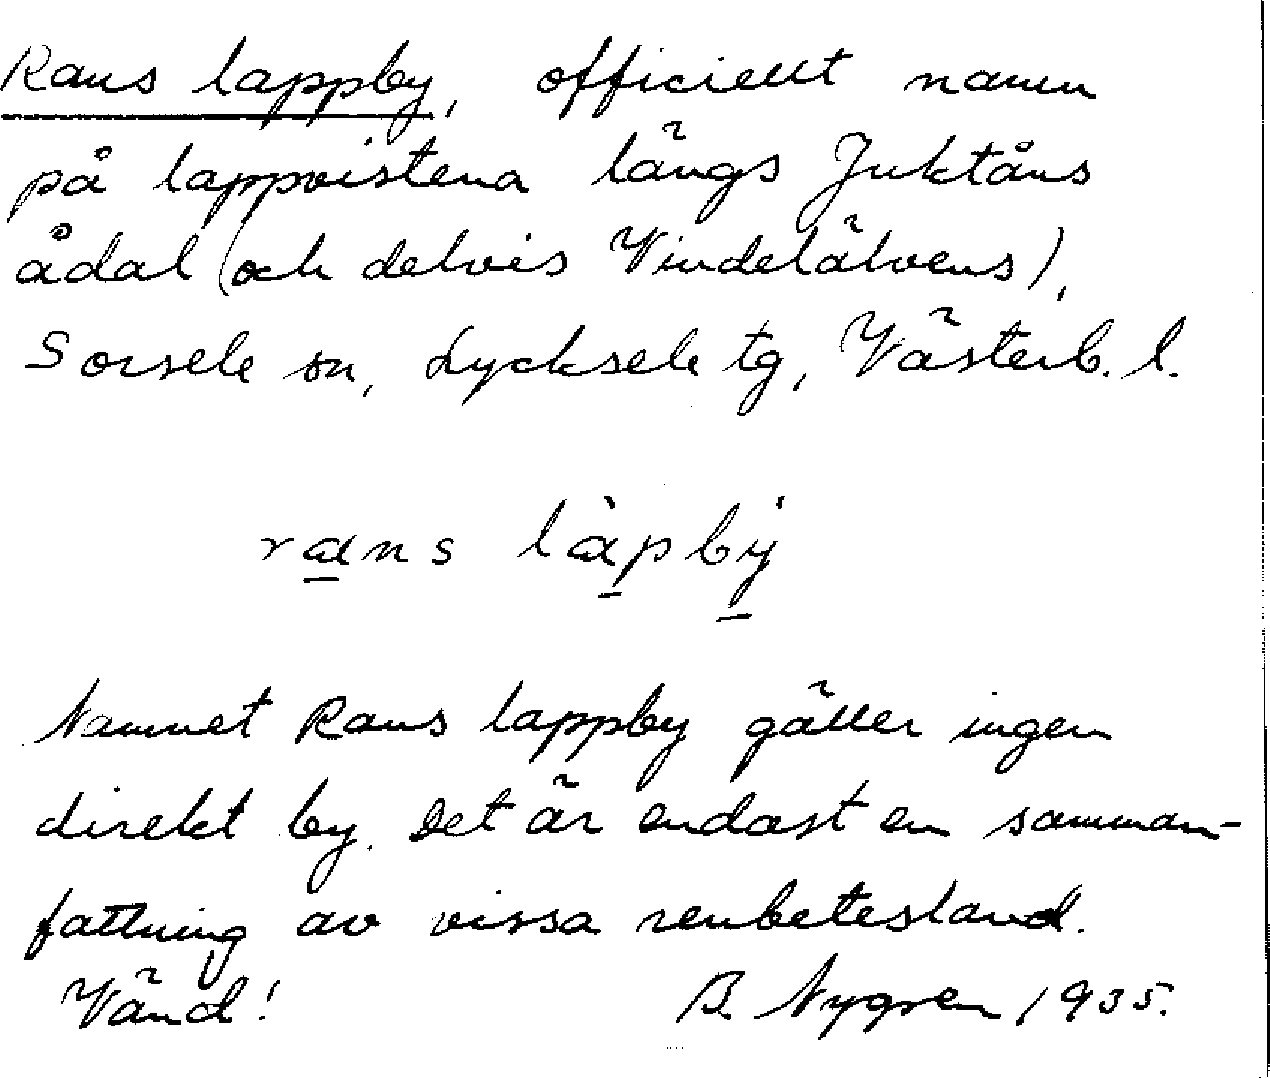 Rans lappby, officiellt namn
på lappvistena längs Juktåns
ådal (och delvis Vindelälvens),
Sorsele sn, Lycksele tg, Västerb. l.
rans làpbý
Namnet Rans lappby gäller ingen
direkt by. Det är endast en samman-
fattning av vissa renbetesland.
Vänd! B. Nygren 1935.